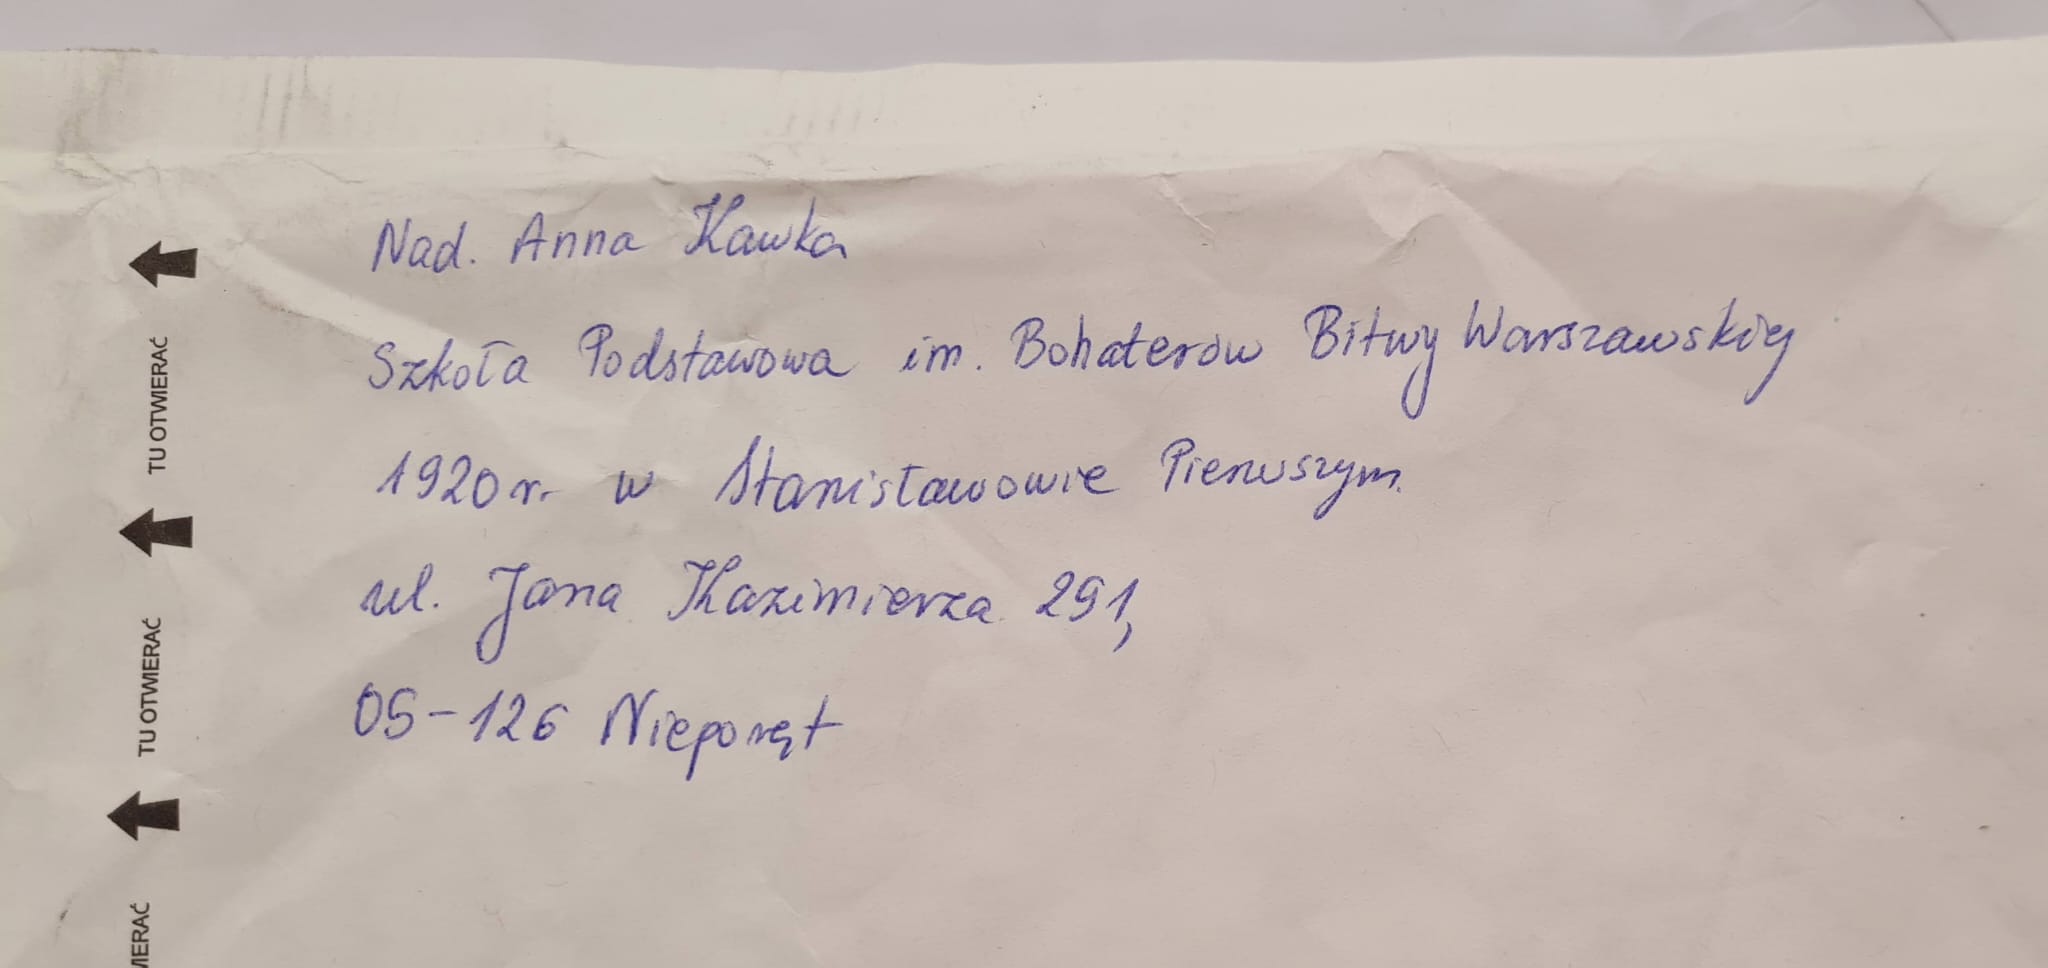 Nad. Anna Kawka
Szkoła Podstawowa im. Bohaterów Bitwy Warszawskiej
1920 r. w Stanisławowie Pierwszym
ul. Jana Kazimierza 291,
05-126 Nieporęt
TU OTWIERAĆ
TU OTWIERAĆ
WIERAĆ